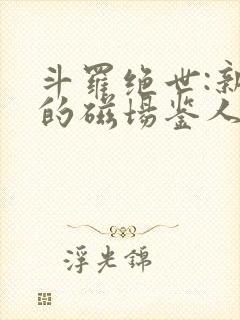 斗羅绝世:新
的磁場鉴人
浮光錦